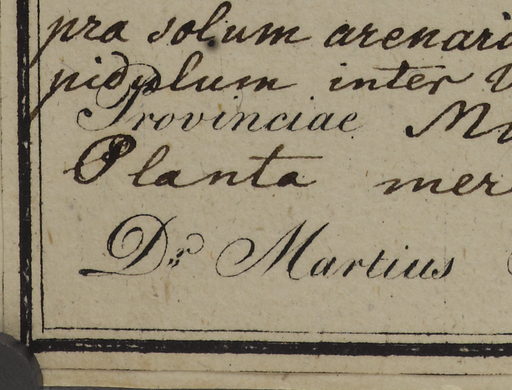 pra solum arenari
pidulum inter V
Provinciae Mi
Planta mer
Dr. Martius